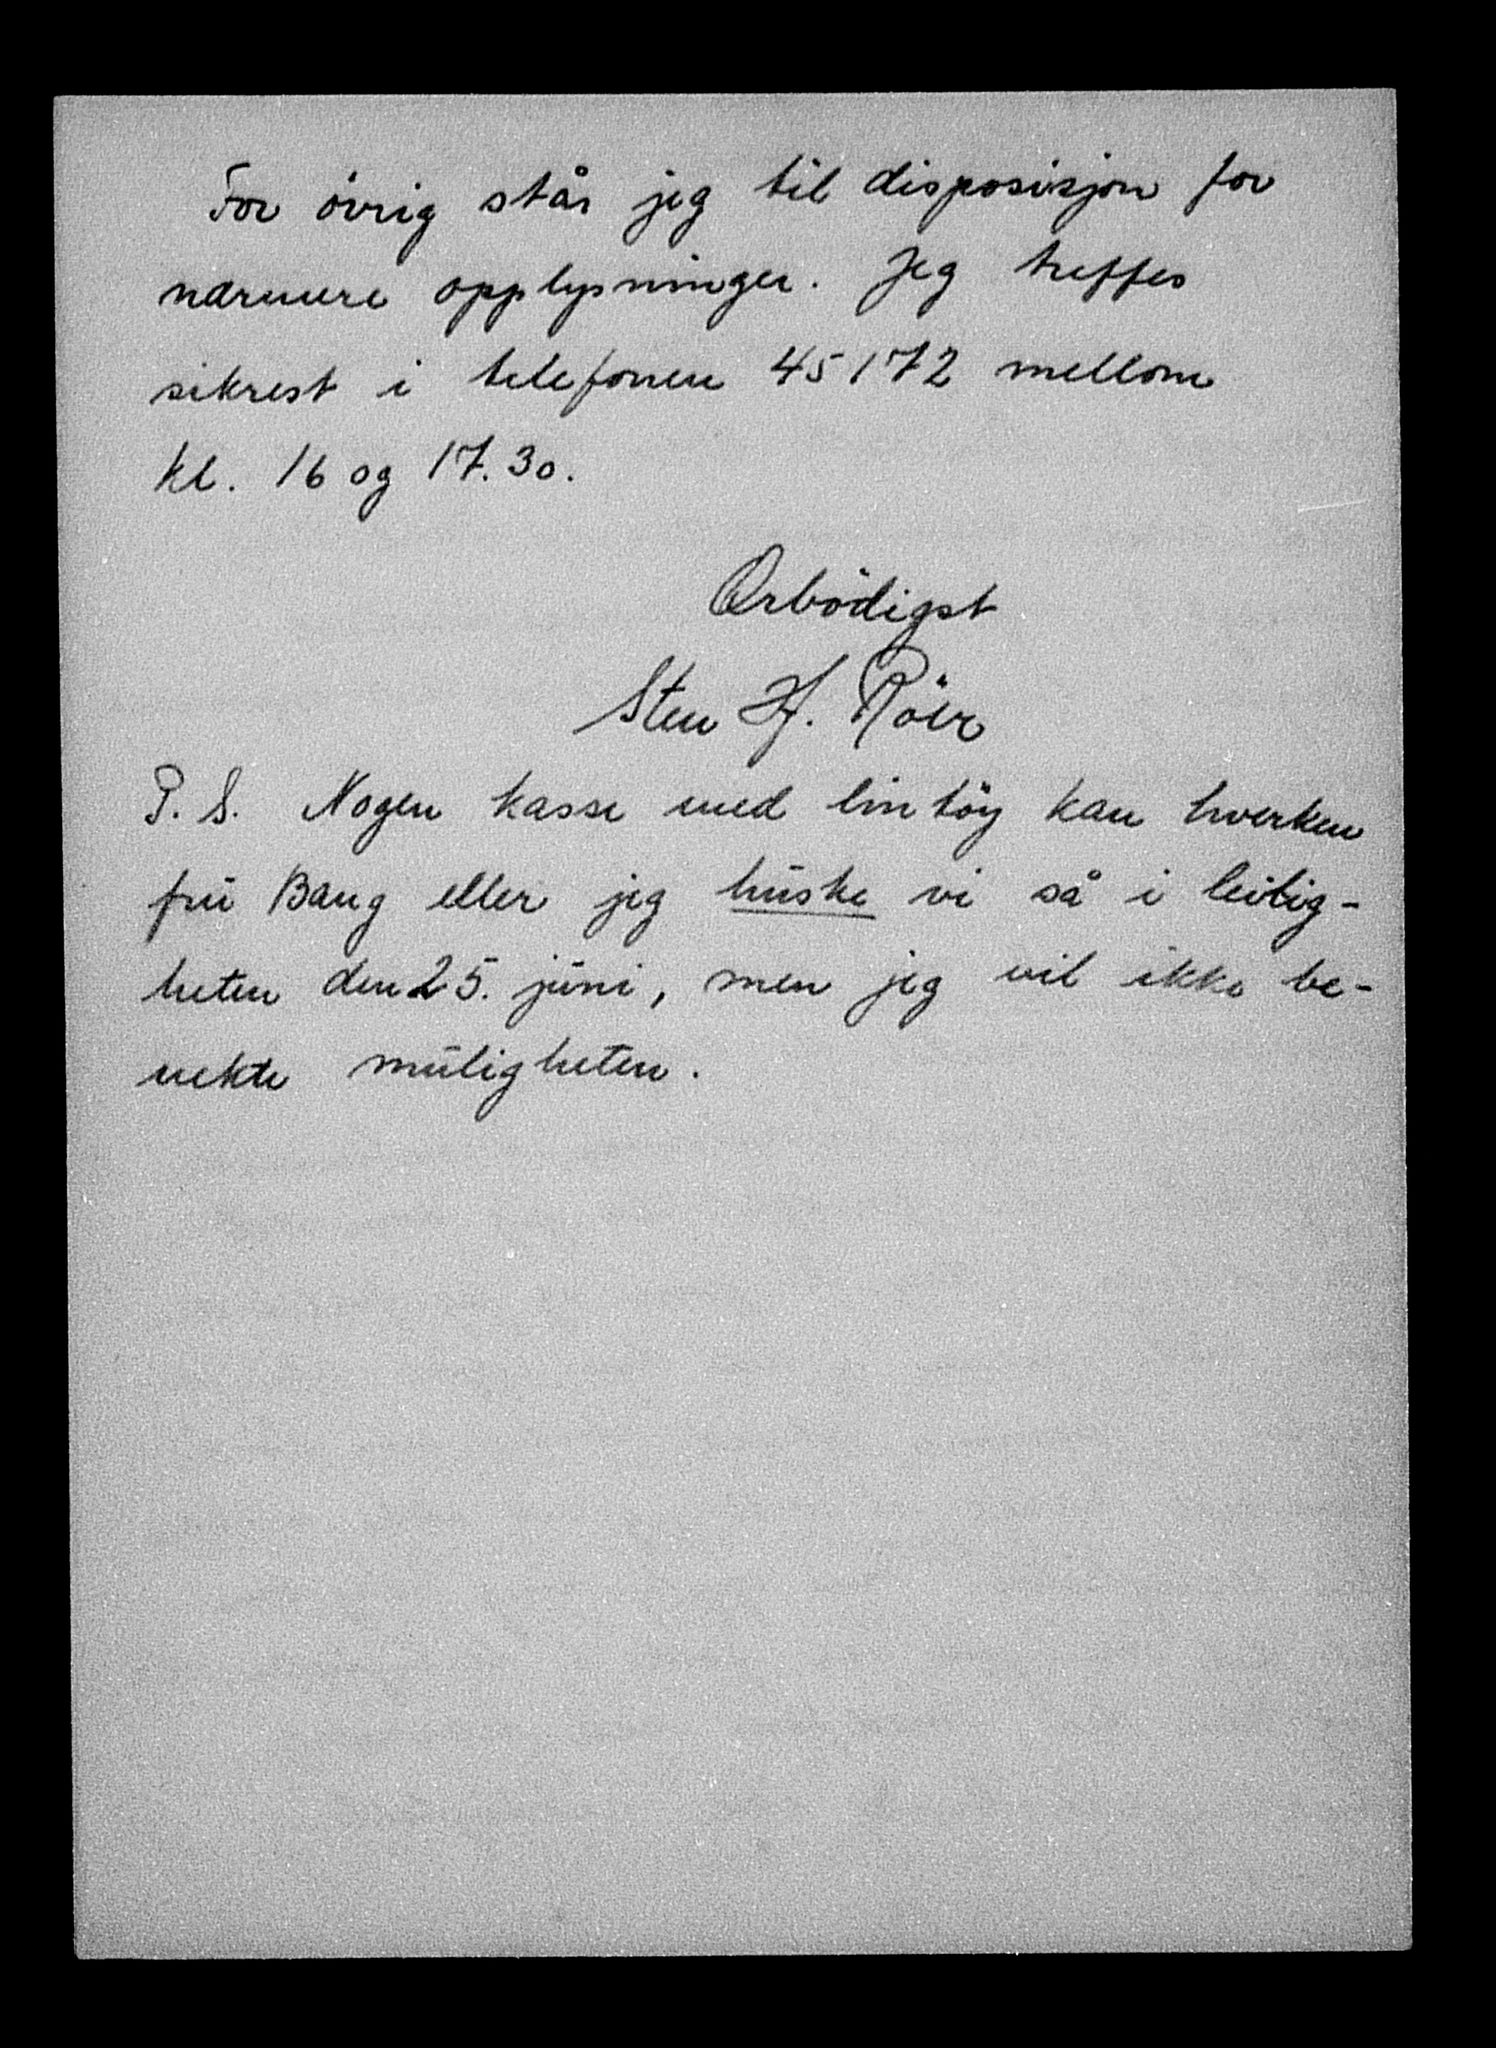 For övrig står jeg til disposisjon for
nærmere opplysninger. Jeg treffes
sikrest i telefonen 45172 mellom
kl. 16 og 17.30.
Ærbödigst
Sten H. Röer
P.S. Nogen kasse med lintöy kan hverken
fru Bang eller jeg huske vi så i leilig-
heten den 25. juni, men jeg vil ikke be-
nekte muligheten.